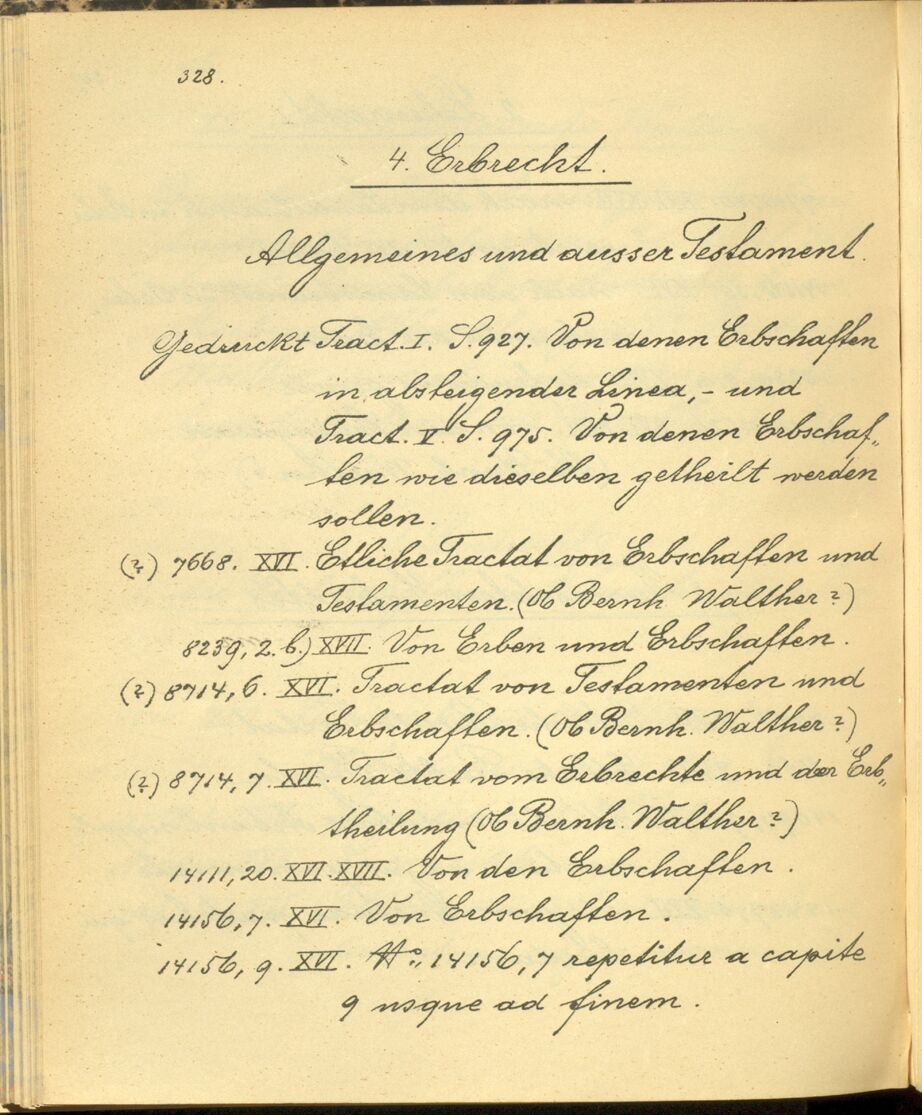 328.
4. Erbrecht.
Allgemeines und ausser Testament.
Gedruckt Tract. I. S. 927. Von denen Erbschaften
in absteigender Linea, - und
Tract. V. S. 975. Von denen Erbschaf„
ten wie dieselben getheilt werden
sollen.
(?) 7668. XVI. Etliche Tractat von Erbschaften und
Testamenten. (Ob Bernh Walther?)
8239, 2. b.) XVII. Von Erben und Erbschaften.
(?) 8714, 6. XVI. Tractat von Testamenten und
Erbschaften. (Ob Bernh. Walther?)
(?) 8714, 7. XVI. Tractat vom Erbrechte und der Erb„
theilung (Ob Bernh. Walther?)
14111, 20. XVI. XVII. Von den Erbschaften.
14156, 7. XVI. Von Erbschaften.
14156, 9. XVI. No„ 14156, 7 repetitur a capite
9 usque ad finem.